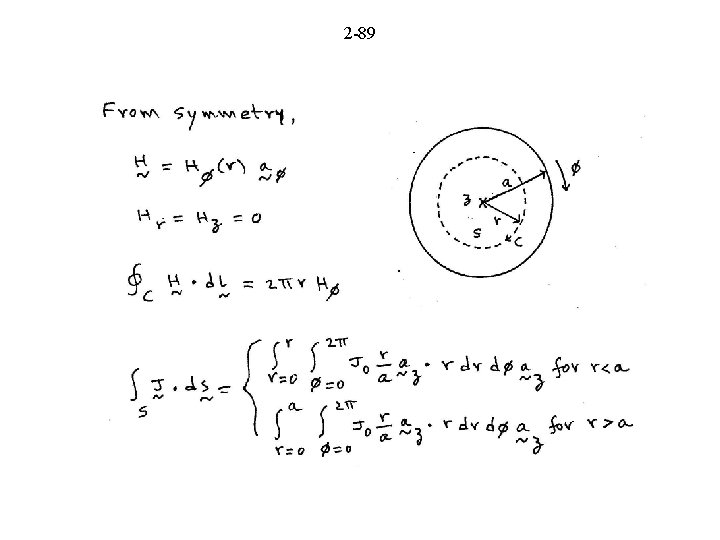 2-89
From symmetry,
H = H_ϕ(r) a_ϕ
H_r = H_z = 0
∮_C H · dl = 2πr H_ϕ
∫_S J · dS = { ∫_{r=0}^{r} ∫_{ϕ=0}^{2π} J_0 r/a a_z · r dr dϕ a_z for r<a
∫_{r=0}^{a} ∫_{ϕ=0}^{2π} J_0 r/a a_z · r dr dϕ a_z for r>a
ϕ
a
z
r
S
C